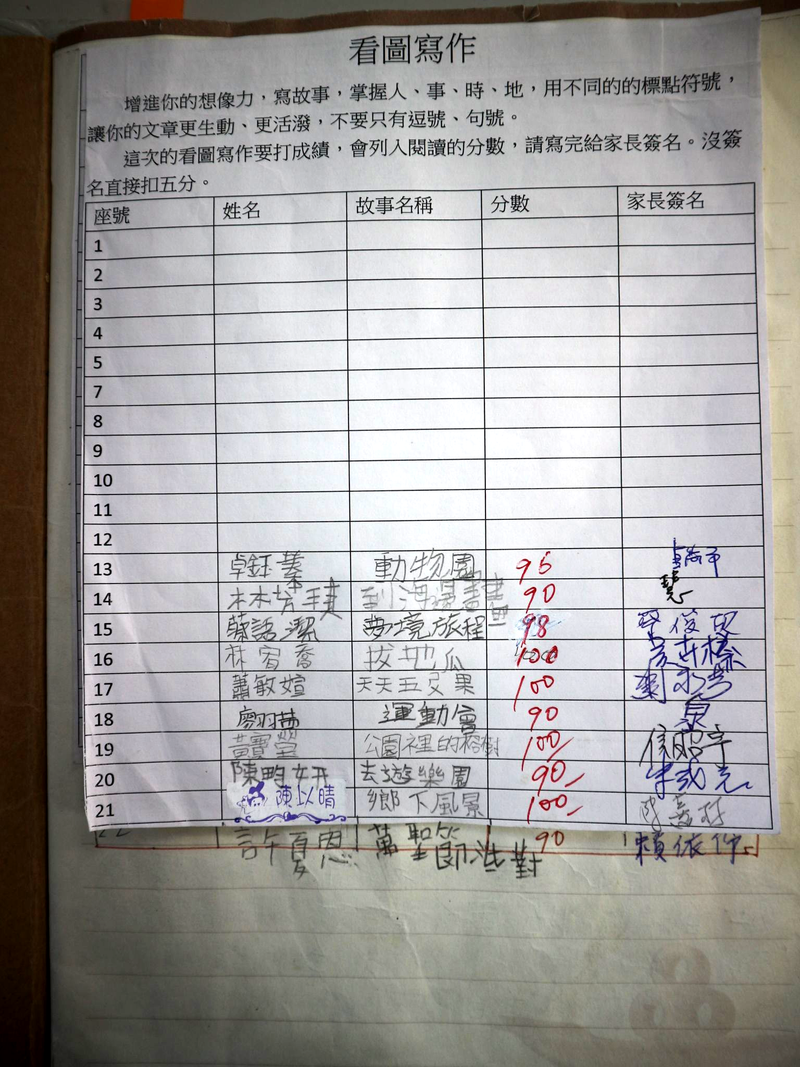 看圖寫作
增進你的想像力，寫故事，掌握人、事、時、地，用不同的的標點符號，
讓你的文章更生動、更活潑，不要只有逗號、句號。
這次的看圖寫作要打成績，會列入閱讀的分數，請寫完給家長簽名。沒簽
名直接扣五分。
座號 姓名 故事名稱 分數 家長簽名
1
2
3
4
5
7
8
9
10
11
12
13 卓鈺蓁 動物園 95
14 到海邊 90
15 夢境旅程 98
16 林宥喬 拔地瓜 100
17 蕭敏媗 天天五蔬果 100
18 運動會 90
19 黃寶瑩 公園裡的榕樹 100
20 陳畇妍 去遊樂園 90
21 陳以晴 鄉下風景 100
22 許夏恩 萬聖節派對 90